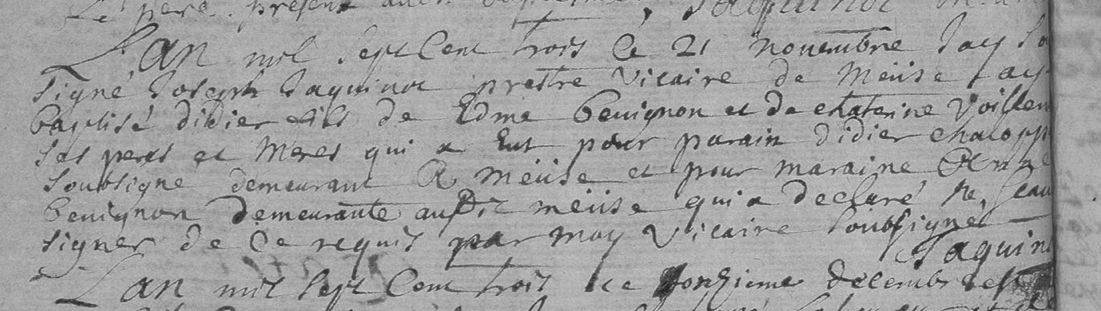 Le pere present
L'an mil sept Cent trois Ce 21 novembre Jay So
signé Joseph Jaquinot prestre Vicaire de Meüse ay
baptisé didier fils de Edme benignon et de chaterine Voillem
ses peres et Meres qui a Eut pour parain didier chalopp
soubsigné demeurant A meüse et pour maraine Anne
benignon demeurante audit meüse qui a declaré ne scav
signer de Ce requis par moy Vicaire soubsigné
Jaquino
L'an mil sept Cent trois ce onzieme decembre